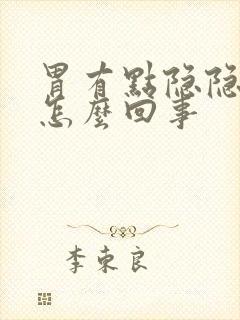 胃有點隐隐
怎麼回事
李東良